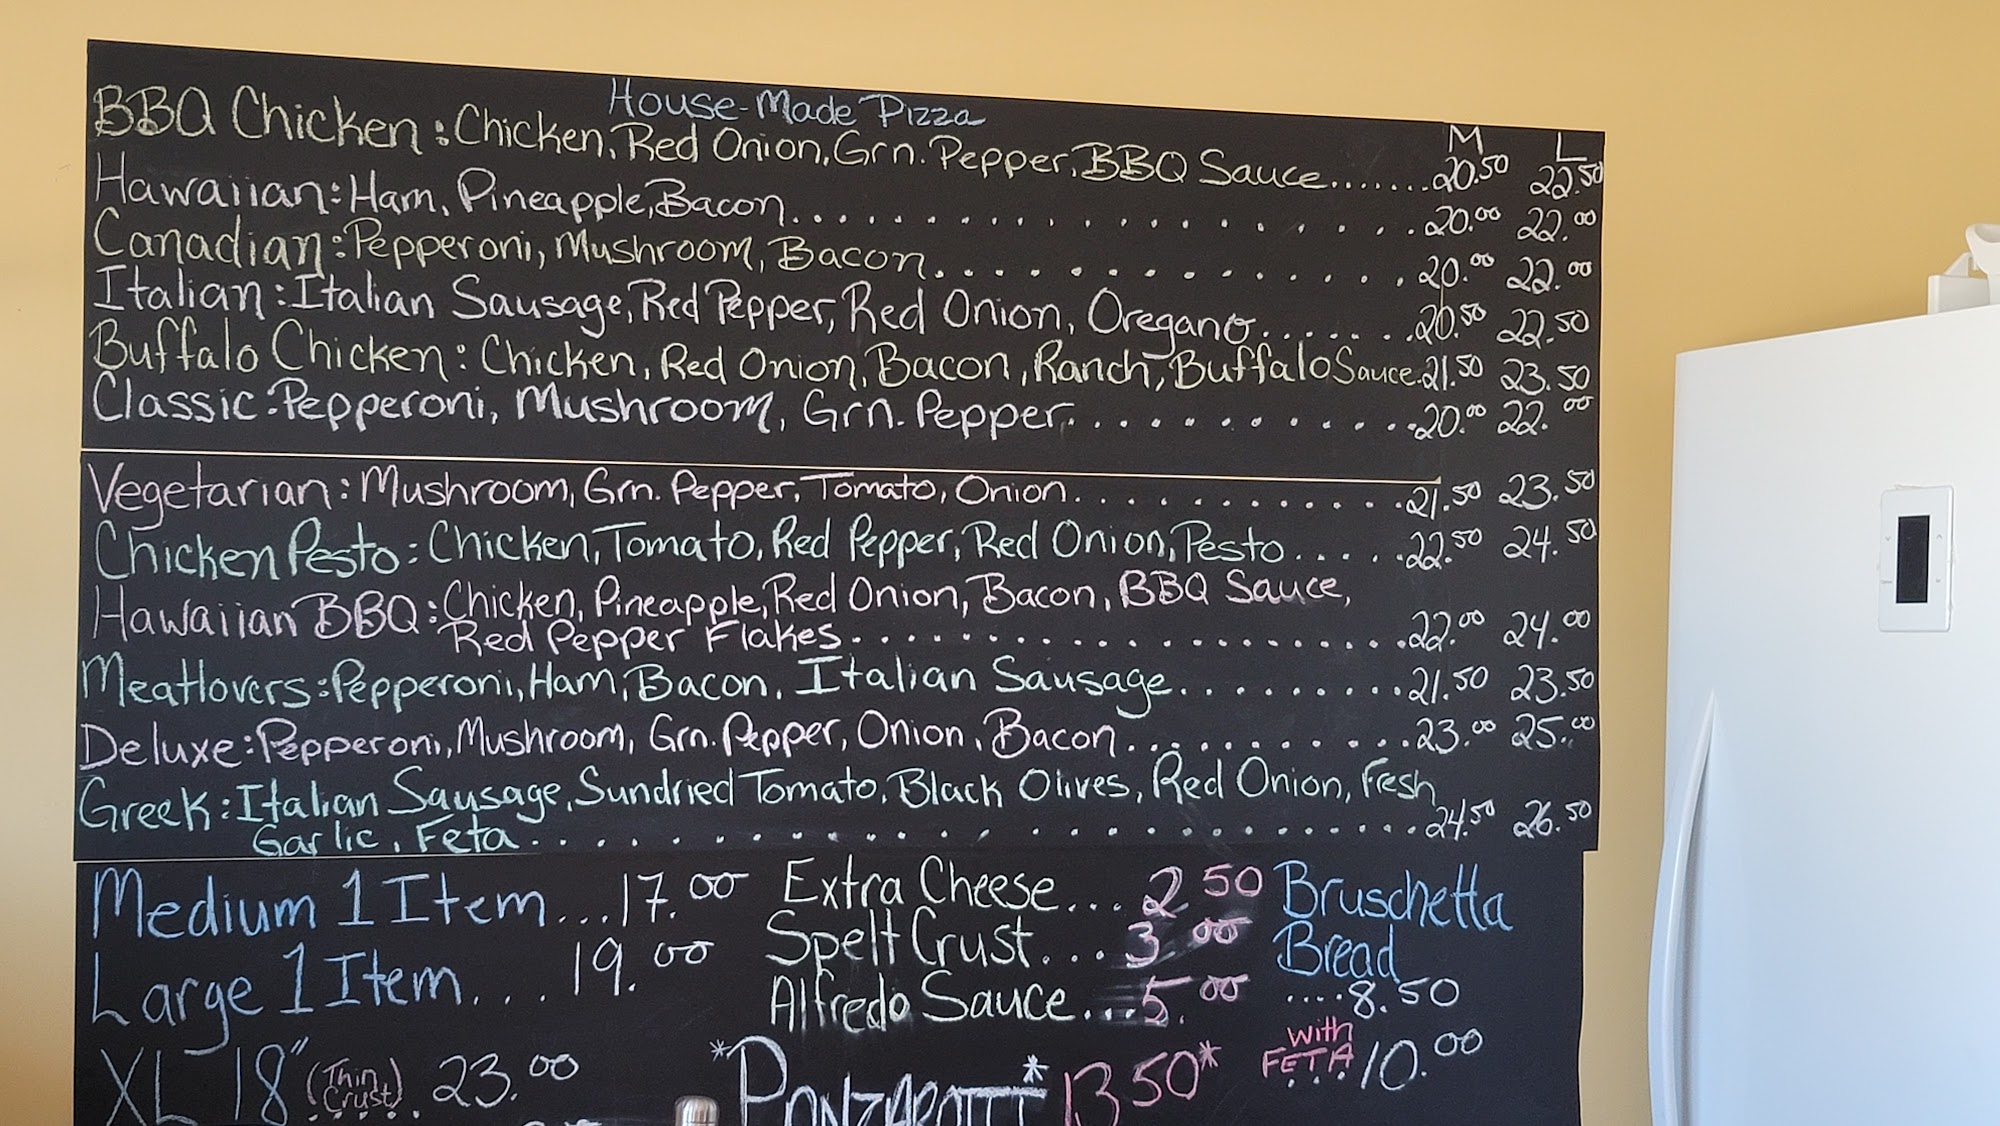 House-Made Pizza
M L
BBQ Chicken: Chicken, Red Onion, Grn. Pepper, BBQ Sauce.......20.50 22.50
Hawaiian: Ham, Pineapple, Bacon....................20.00 22.00
Canadian: Pepperoni, Mushroom, Bacon................20.00 22.00
Italian: Italian Sausage, Red Pepper, Red Onion, Oregano.......20.50 22.50
Buffalo Chicken: Chicken, Red Onion, Bacon, Ranch, Buffalo Sauce.21.50 23.50
Classic: Pepperoni, Mushroom, Grn. Pepper.............20.00 22.00
Vegetarian: Mushroom, Grn. Pepper, Tomato, Onion.............21.50 23.50
Chicken Pesto: Chicken, Tomato, Red Pepper, Red Onion, Pesto......22.50 24.50
Hawaiian BBQ: Chicken, Pineapple, Red Onion, Bacon, BBQ Sauce,
Red Pepper Flakes.....................22.00 24.00
Meatlovers: Pepperoni, Ham, Bacon, Italian Sausage.........21.50 23.50
Deluxe: Pepperoni, Mushroom, Grn. Pepper, Onion, Bacon............23.00 25.00
Greek: Italian Sausage, Sundried Tomato, Black Olives, Red Onion, Fresh
Garlic, Feta.........................24.50 26.50
Medium 1 Item...17.00
Large 1 Item....19.00
XL 18" (Thin Crust).....23.00
Extra Cheese...2.50
Spelt Crust...3.00
Alfredo Sauce...5.00
*Ponzarotti* 13.50*
Bruschetta
Bread
....8.50
with
FETA...10.00